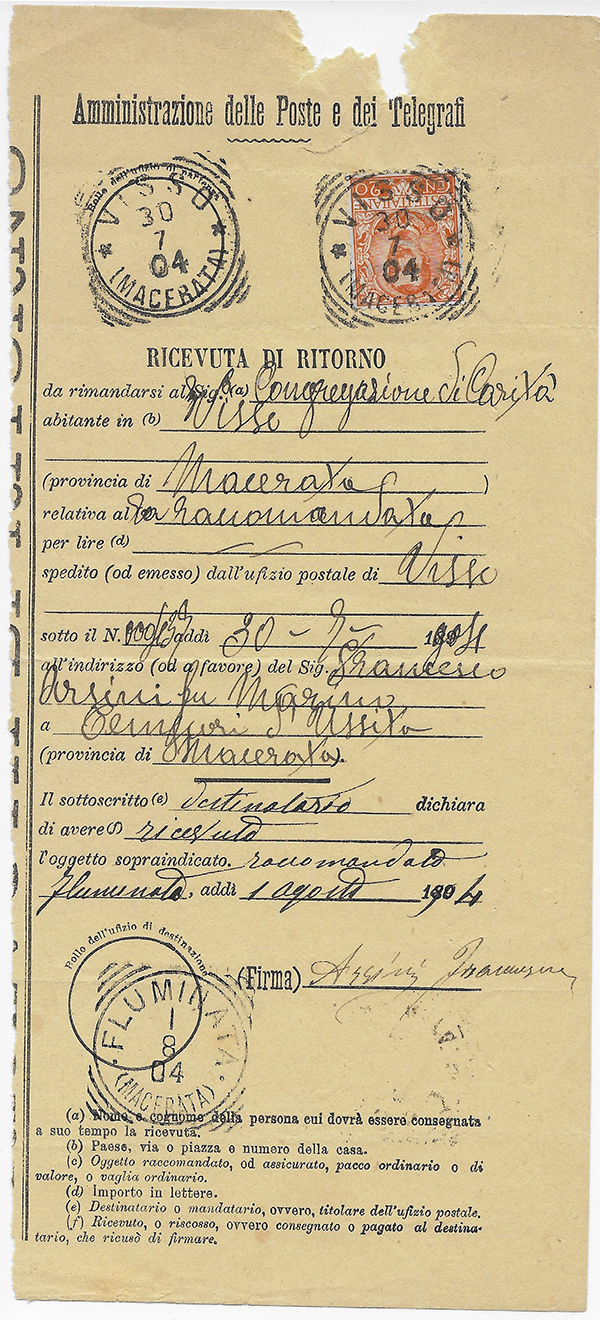 Amministrazione delle Poste e dei Telegrafi
Bollo dell'ufizio di partenza
VISSO
30
7
04
(MACERATA)
CENT 20
VISSO
30
7
04
(MACERATA)
RICEVUTA DI RITORNO
da rimandarsi al Sig. (a) Congregazione di Carità
abitante in (b) Visso
(provincia di Macerata)
relativa al la raccomandata
per lire (d)
spedito (od emesso) dall'ufizio postale di Visso
sotto il N. addì 30 - 7 - 1904
all'indirizzo (od a favore) del Sig. Francesco
Orsini fu Marino
a d'Ussita
(provincia di Macerata).
Il sottoscritto (e) destinatario dichiara
di avere (f) ricevuto
l'oggetto sopraindicato. raccomandato
Fluminata, addì 1 agosto 1904
Bollo dell'ufizio di destinazione
(Firma) Francesco
FLUMINATA
1
8
04
(MACERATA)
(a) Nome e cognome della persona cui dovrà essere consegnata
a suo tempo la ricevuta.
(b) Paese, via o piazza e numero della casa.
(c) Oggetto raccomandato, od assicurato, pacco ordinario o di
valore, o vaglia ordinario.
(d) Importo in lettere.
(e) Destinatario o mandatario, ovvero, titolare dell'ufizio postale.
(f) Ricevuto, o riscosso, ovvero consegnato o pagato al destina-
tario, che ricusò di firmare.